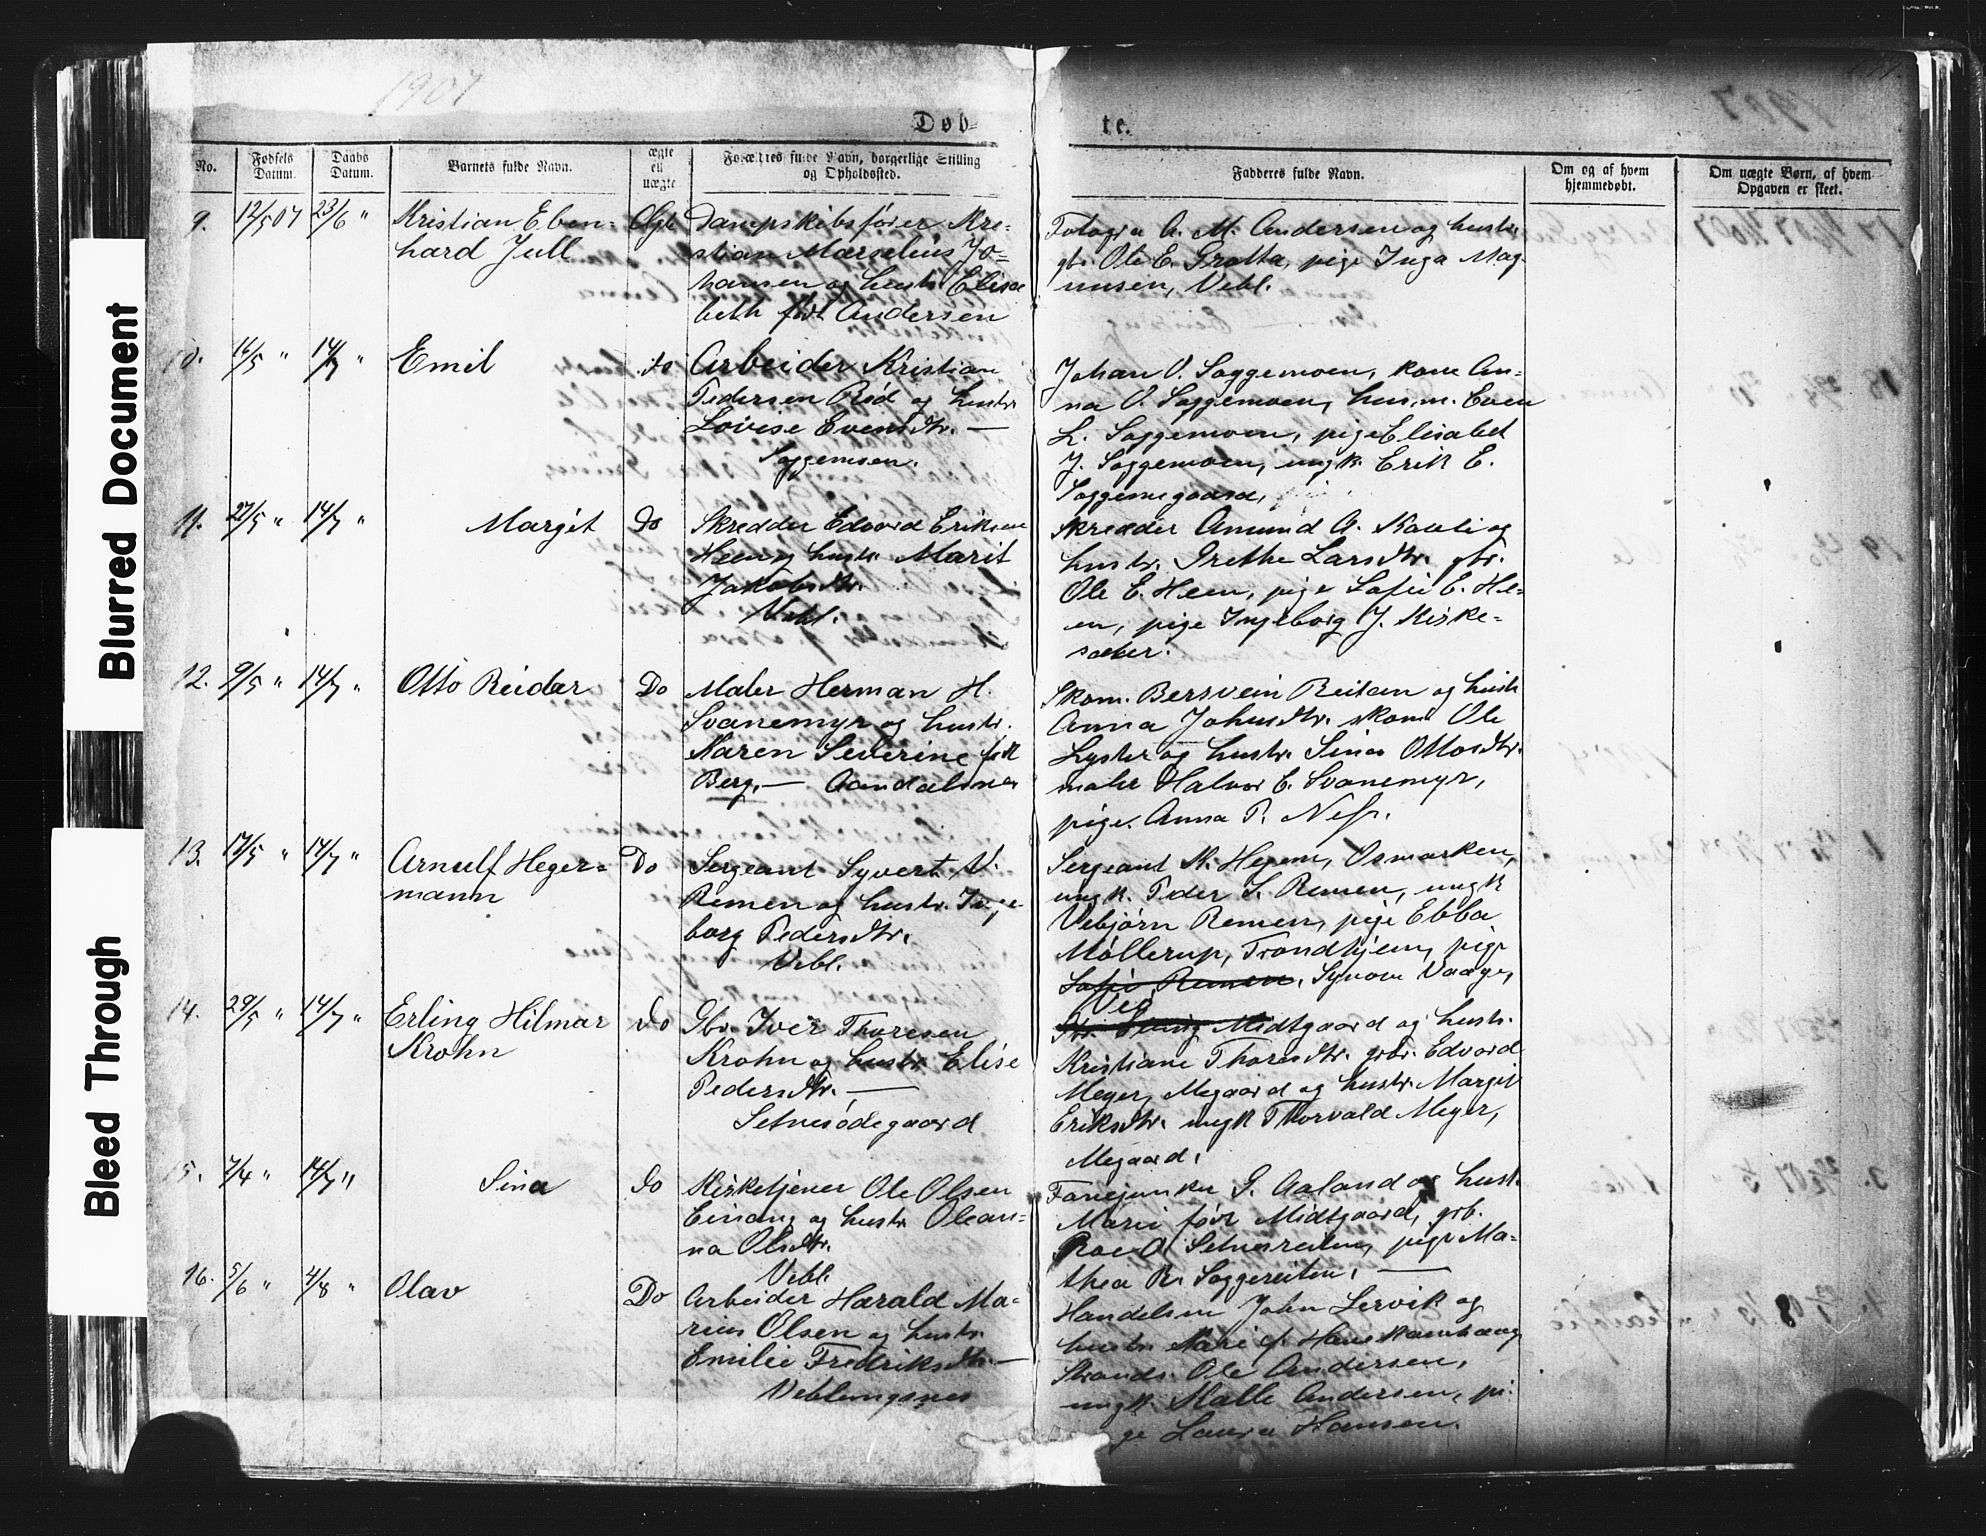 1907
Døb-
te.
No.
Fødsels Datum.
Daabs Datum.
Barnets fulde Navn.
ægte ell uægte
Forældres fulde Navn, borgerlige Stilling og Opholdssted.
Fadderes fulde Navn.
Om og af hvem hjemmedøbt.
Om uægte Børn, af hvem Opgaven er skeet.
9. 12/5 07 23/6 " Kristian Eben-
hard Jull
Ægte
Dampskibsfører Kri-
stian Marselius Jo-
hansen og hustr. Elisa
beth født Andersen
A. M. Andersen og hustr.
gbr. Ole E. Grøtta, pige Inga Mag
nusen, Vebl.
10. 16/5 " 14/7 " Emil
do
Arbeider Kristian
Pedersen Rød og hustr.
Lovise Evensdtr. —
Soggemoen.
Johan O. Soggemoen, kone An-
na O. Soggemoen, husm. Even
L. Soggemoen, pige Elisabet
J. Soggemoen, ungk. Erik E.
Soggemegaard,
11. 27/5 " 14/7 " Margit
do
Skrædder Edvard Eriksen
Heen og hustr. Marit
Jakobsdtr.
Vebl.
Skrædder Amund A. og
hustr. Grethe Larsdtr. gbr.
Ole E. Heen, pige Sofie E. He-
en, pige Ingeborg J. Kirke-
sæter.
12. 9/5 " 14/7 " Otto Reidar
Do
Maler Herman H.
Svanemyr og hustr.
Karen Severine født
Berg. — Aandalsnes
Skom. Bersvein Reitan og hustr.
Anna Johnsdtr. skom. Ole
Lyster og hustr. Sina Ottosdtr.
maler Halvor E. Svanemyr,
pige Anna P. Ness.
13. 17/5 " 14/7 " Arnulf Heger-
mann
Do
Sergeant Syvert V.
Remen og hustr. Inge
borg Pedersdtr.
Vebl.
Sergeant K. Hegem, Osmarken,
ungk. Peder S. Remen, ungk
Vebjørn Remen, pige Ebba
Møllerup, Trondhjem, pige
Sofie Remen, Synove Vaage,
Veb
14. 29/5 " 14/7 " Erling Hilmar
Krohn
do
Gbr. Iver Thoresen
Krohn og hustr. Elise
Pedersdtr. —
Setnesødegaard
Midtgaard og hustr.
Kristiane Thoresdtr. gbr. Edvard
Meyer, Megaard og hustr. Margit
Eriksdtr. ungk Thorvald Meyer,
Megaard.
15. 7/4 " 14/7 " Sina
do
Kirketjener Ole Olsen
Einang og hustr. Olean-
na Olsdtr.
Vebl.
Fanejunker G. Aaland og hustr.
Marie født Midtgaard, grb.
Roe O. Setnesreiten, pige Ma-
thea R. Soggereiten. —
16. 5/6 " 4/8 " Olav
Do
Arbeider Harald Ma-
rius Olsen og hustr.
Emilie Fredriksdtr. —
Veblungsnes
Handelsm John Lervik og
hustr. Kari f.
Strands. Ole Andersen,
ungk. Kalle Andersen, pi-
ge Laura Hansen.
Blurred Document
Bleed Through